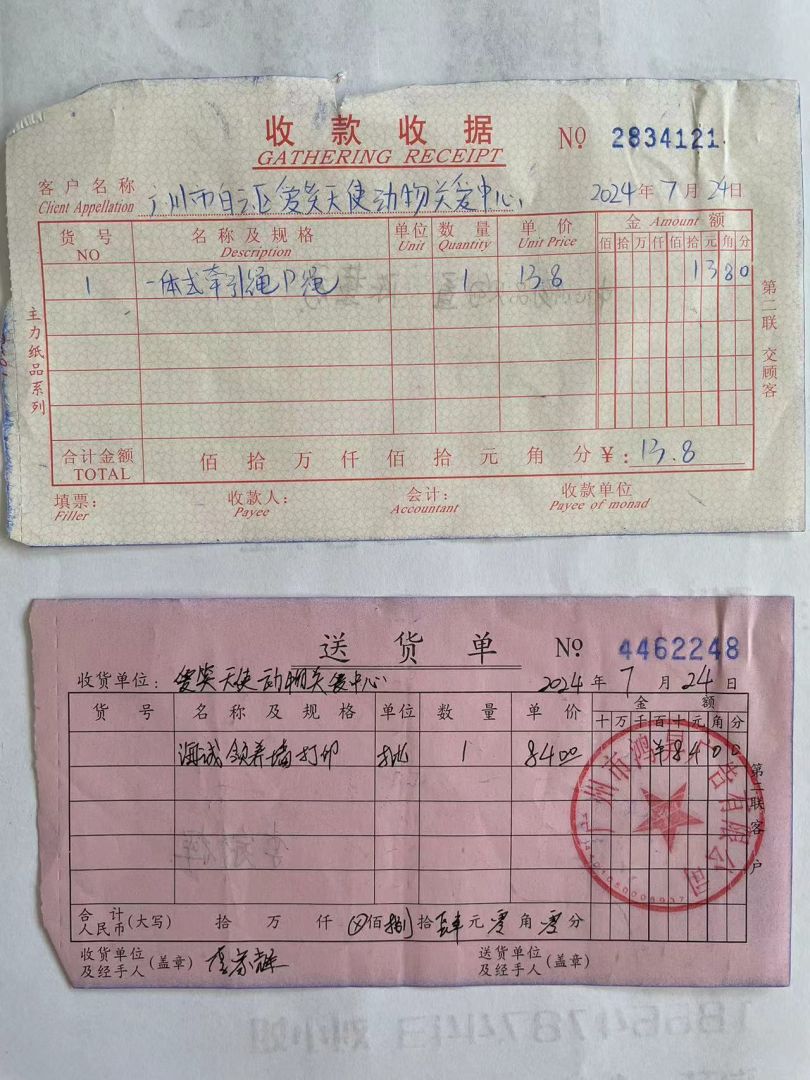 收款收据
GATHERING RECEIPT
№ 2834121
客户名称 广州市白云区爱笑天使动物关爱中心
Client Appellation
2024年7月24日
货号 名称及规格 单位 数量 单价 金 Amount 额
NO Description Unit Quantity Unit Price 佰拾万仟佰拾元角分
1 一体式牵引绳P绳 1 13.8 1380
合计金额 佰 拾 万 仟 佰 拾 元 角 分 ¥: 13.8
TOTAL
填票: 收款人: 会计: 收款单位
Filler Payee Accountant Payee of monad
主力纸品系列
第二联 交顾客
送货单 № 4462248
收货单位: 爱笑天使动物关爱中心 2024年7月24日
货号 名称及规格 单位 数量 单价 金额
十万千百十元角分
领养墙打印 批 1 8400 ¥8400
合计
人民币(大写) 拾 万 仟 ⊗佰 捌拾 肆元 零角 零分
收货单位
及经手人(盖章)
送货单位
及经手人(盖章)
第二联客户
广州市鸿星广告有限公司